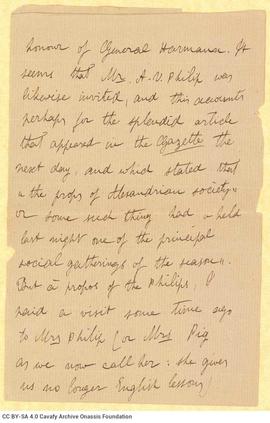 honour of General Harmann. It
seems that Mr. A. V. Philip was
likewise invited, and this accounts
perhaps for the splendid article
that appeared in the Gazette the
next day, and which stated that
« the props of Alexandrian society »
or some such thing had « held
last night one of the principal
social gatherings of the season ».
But à propos of the Philips, I
paid a visit some time ago
to Mrs Philip (or Mrs Pig
as we now call her: she gives
us no longer English lessons)
CC BY-SA 4.0 Cavafy Archive Onassis Foundation